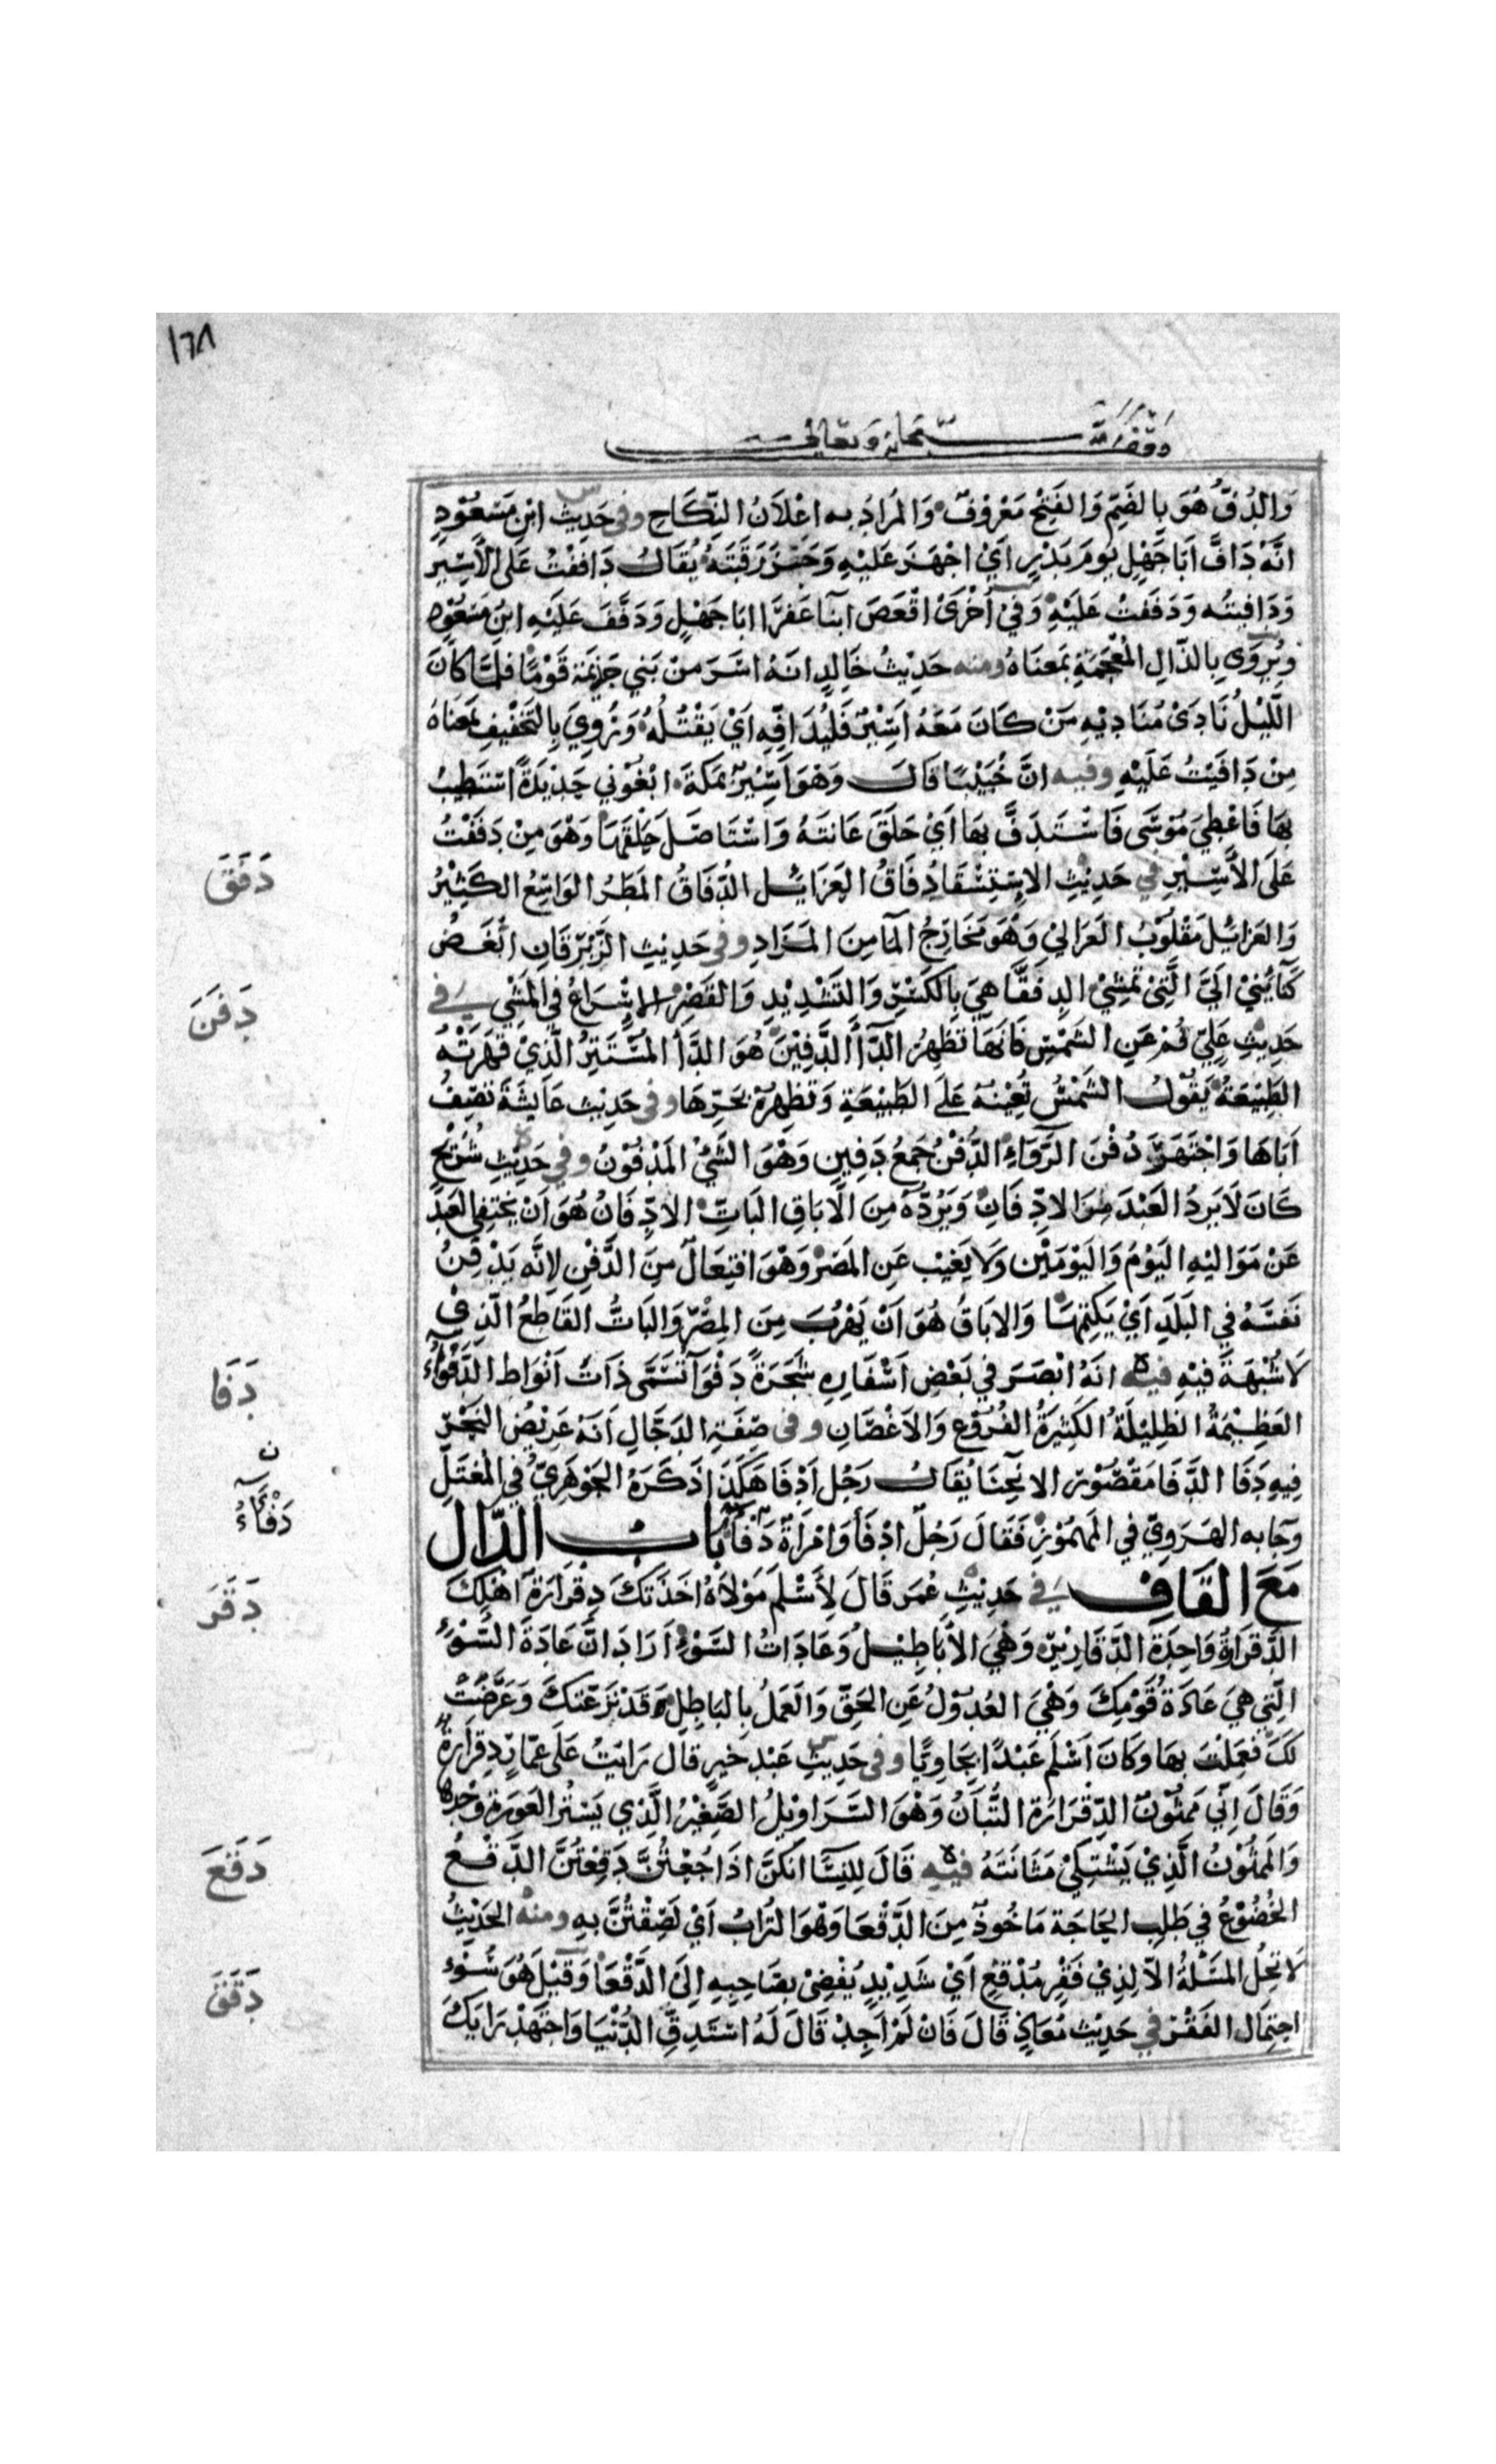 ١٦٨
وقف لله سبحانه وتعالى
وَالدُّفُّ هُوَ بِالضَّمِّ وَالفَتْحِ مَعْرُوفٌ وَالمُرَادُ بِه اعْلَانُ النِّكَاحِ وفى حَدِيْثِ ابْنِ مَسْعُوْدٍ
انَّهُ دَافَّ اَبَا جَهْلٍ يَوْمَ بَدْرٍ اَيْ اجْهَزَ عَلَيْهِ وَحَزَّ رَقَبَتَهُ يُقَالُ دَافَفْتُ عَلَى الْاَسِيْرِ
وَدَافيتُه وَدَفَفْتُ عَلَيْهِ وَفي اُخْرَىْ اقْعَصَ ابْنَا عَفرَا ابَا جَهْلٍ وَدَفَّفَ عَلَيْهِ ابنُ مَسْعُوْدٍ
وَيُرْوَى بِالذَّالِ المُعْجَمَةِ بمَعنَاهُ ومنه حَدِيْثُ خَالِدٍ انَهُ اسَرَ مِنْ بَنِي جَذِيمَة قَوْمًا فلمَّا كَانَ
اللّيْلُ نَادَىْ مُنَادِيْهِ مَنْ كَانَ مَعَهُ اَسِيْرٌ فَليُدَافِّهِ اَيْ يَقْتُلْهُ وَرُوِيَ بِالتَّخْفِيْفِ بمَعنَاهُ
مِنْ دَافَيْتُ عَلَيْهِ وفيه انَّ خُبَيْبًا قَالَ وَهْوَ اَسِيْرٌ بمَكَّةَ ابْغُوْنِي حَدِيْدَةً اسْتَطِيْبُ
بِهَا فَاعْطِيَ مُوْسَى فَاسْتَدَفَّ بِهَا اَيْ حَلَقَ عَانَتَهُ وَاسْتَاصَلَ حَلْقَهَا وَهْوَ مِنْ دَفَفْتُ
عَلَى الْاَسِيْرِ في حَدِيْثِ الاسْتِسْقَا دُفَاقُ العَزَائِلِ الدُّفَاقُ المَطَرُ الوَاسِعُ الكَثِيْرُ
وَالعَزائلُ مَقْلُوْبُ العَزَالِيْ وَهْوَ مَخَارِجُ المَآ مِنَ المَزَادِ وفى حَدِيْثِ الزِّبْرِقَانِ ابْغَضُ
كَنَايِنِيْ اِلَيَّ الَّتِيْ تَمْشِيْ الدِفِقَّا هِيَ بِالكَسْرِ وَالتَّشْدِيْدِ وَالقَصْرِ الاسْرَاعُ فِي المَشْيِ في
حَدِيْثِ عَلِيٍّ قُمْ عَنِ الشَمْسِ فَانَهَا تُظْهِرُ الدَّآأَ الدَّفِيْنَ هُوَ الدَّأ المُسْتَتِرُ الَّذِيْ قَهَرَتْهُ
الطَبِيْعَةُ يَقُوْلُ الشَمْسُ تُعِيْنُهُ عَلَى الطَبِيْعَةِ وَتُظهِرُهُ بحَرِّهَا وفى حَدِيْثِ عَايِشَةَ تَصِفُ
اَبَاهَا وَاجْتَهَرَ دُفْنَ الرَّوَاءِ الدُّفْنُ جَمعُ دَفِينٍ وَهْوَ الشَّيْ المَدْفُوْنُ وفي حَدِيْثِ شُرَيْحٍ
كَانَ لَا يَرِدُ العَبْدَ مِنَ الادّ‍ِفَانِ وَيَرُدُّهُ مِنَ الْابَاقِ البَاتّ الادِّفَانُ هُوَ اَنْ يختَفِي العَبْدُ
عَنْ مَوَاليْهِ اليَوْمَ وَاليَوْمَيْنِ وَلَا يَغِيْب عَنِ المصْرْ وَهْوَ افتِعَالٌ مِنَ الدَّفْنِ لِانَّه يَدْفِنُ
نَفسَهُ فِي البَلَدِ اَيْ يَكتِمُهَا وَالابَاقُ هُوَ اَنْ يَهْرُبَ مِنَ المِصْرْ وَالبَاتُّ القَاطِعُ الَّذِي
لَا شُبْهَةَ فيْهِ فيه انَهُ ابْصَرَ في بَعْضِ اَسْفَارِهِ شَجَرَةً دَفْوَآ تُسَمَّى ذَاتُ اَنْوَاط الدَّفْوَآءُ
العَظِيْمَةُ الظلِيْلَةُ الكَثِيْرَةُ الفُرُوْعِ وَالاَغْصَانِ وفى صِفَةِ الدَجّالِ اَنَهُ عَرِيْضُ النَحْرِ
فِيهِ دَفَا الدَّفَا مَقْصُوْرٌ الانحِنَا يُقَالُ رَجُلٌ اَدْفَا هَكَذَا ذَكَرَهُ الجَوْهَرِيُّ فِي المُعْتَلِّ
وجَا به الهَرَوِيّ في المَهمُوْزِ فَقَالَ رَجُلٌ ادْفَأ وَامْرَاَةٌ دَفْآ بَابُ الدَّالِ
مَعَ القَافِ في حَدِيْثِ عُمَرَ قَالَ لِأَسْلَمَ مَوْلَاهُ اخَذَتكَ دِقْرَارَةُ اهْلِكَ
الدِّقْرَارَةُ وَاحِدَة الدَّقَارِيْرِ وَهْيَ الْابَاطِيْلُ وَعَادَاتُ السَّوْءِ اَرَادَ انَّ عَادَةَ السَّوْءِ
الّتِي هيَ عَادَةُ قَوْمِكَ وَهْيَ العُدُوْلُ عَنِ الحَقّ وَالعَمَلُ بِالبَاطِلِ قَدْ نَزَعَتكَ وَعَرَضَتْ
لَكَ فَعَمِلْتَ بِهَا وَكَانَ اَسْلَم عَبْدًا بجَاوِيًّا وفى حَدِيْثِ عَبْد خَيرٍ قال رَايْتُ عَلَى عَمَّارٍ دِقرَارَةً
وَقَالَ اِنّي مَمثُوْنٌ الدِّقْرَارَة التُّبَانُ وَهْوَ السَّرَاوِيْلُ الصَّغِيْرُ الَّذِي يَسْتُرُ العَوْرَةَ وَحْدَهَا
وَالمَمْثُوْنُ الَّذِيْ يَشْتَكِيْ مَثَانَتَهُ فيه قَالَ لِلنِسَآ انّكُنَّ اذَا جُعْتُنَّ دَقِعْتُنَّ الدَّقَعُ
الخُضُوْعُ في طَلَبِ الحَاجَة مَاخُوذٌ مِنَ الدَّقْعَا وَهْوَ التُرَابُ اَيْ لَصِقْتُنَّ بِهِ ومنه الحَدِيْثُ
لَا تَحِلُّ المسْئَلَةُ الّا لِذِيْ فَقْرٍ مُدْقِعٍ اَيْ شَدِيْدٍ يُفْضِيْ بِصَاحِبِهِ اِلَى الدَّقْعَا وَقِيْلَ هُوَ سُوْءُ
احتِمَال الفَقْرِ في حَدِيْث مُعَاذٍ قَالَ فَان لَمْ اَجِدْ قَالَ لَهُ اسْتَدِقَّ الدُّنْيَا وَاجْتَهِدْ رَايَكَ
دَفَقَ
دَفَنَ
دَفَا
ن
دَفْآءُ
دَقَرَ
دَقَعَ
دَقَقَ